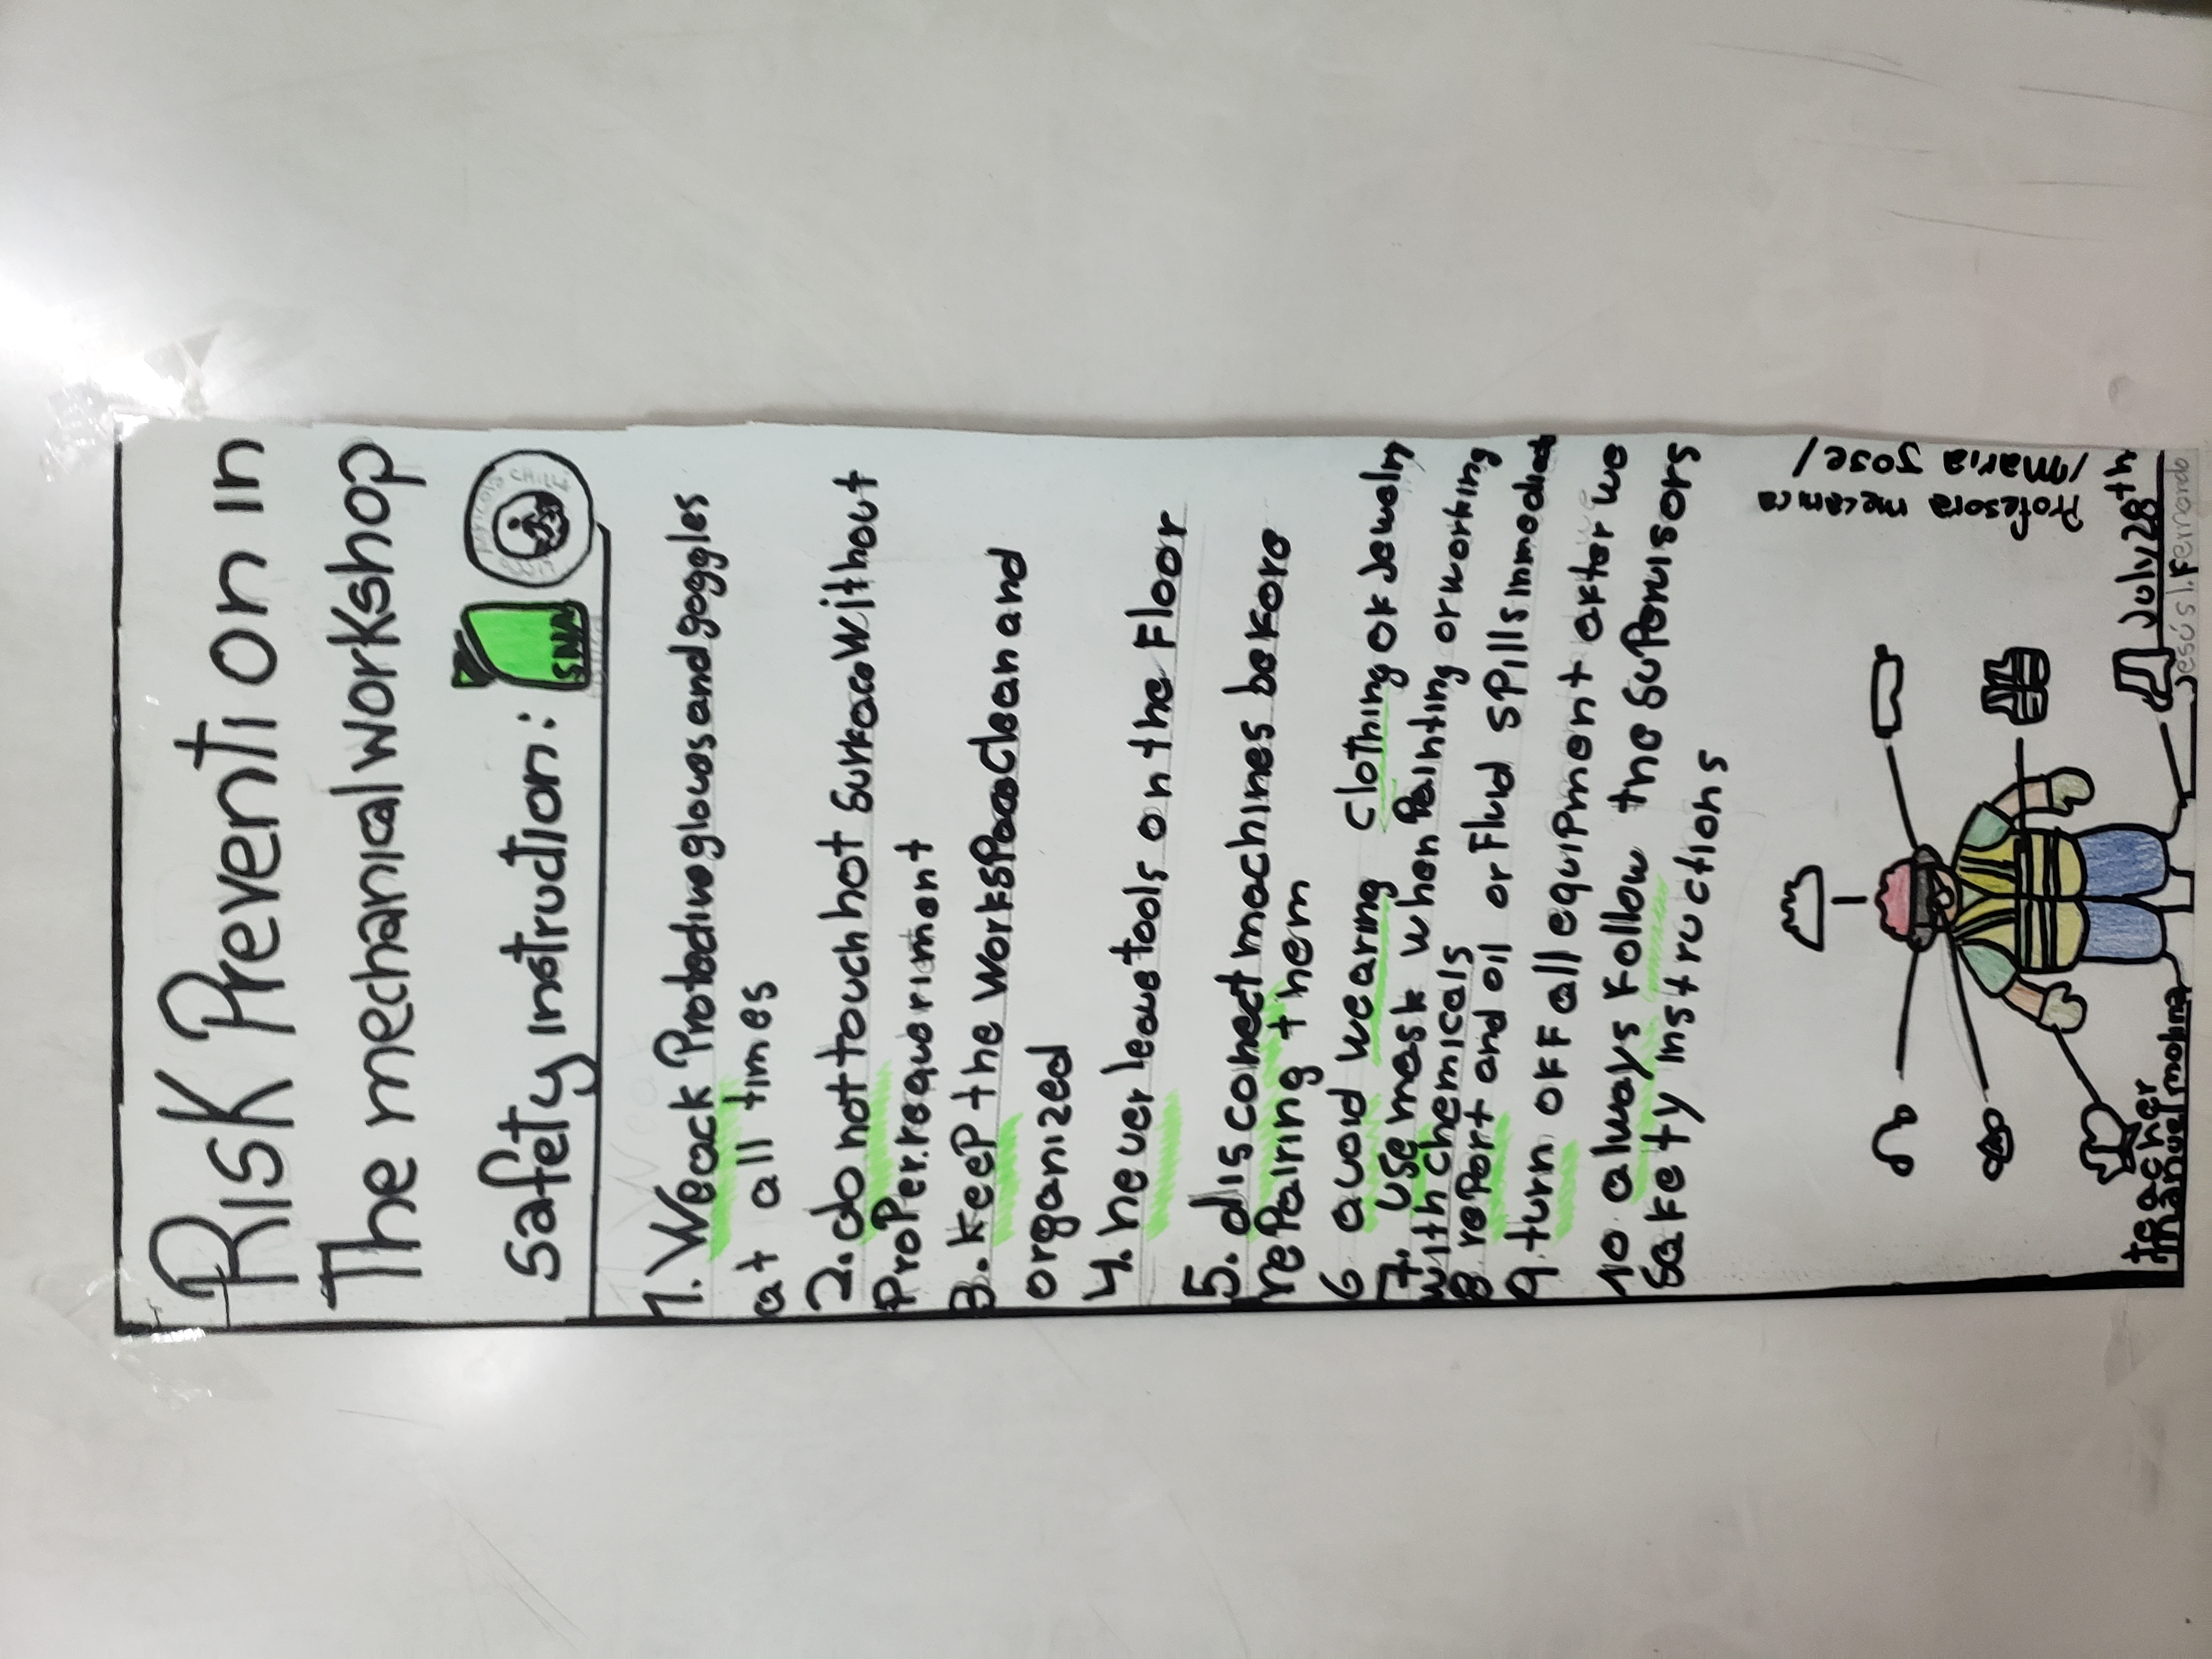 Risk Prevention in
The mechanical workshop
safety instrudion:
SNA
1. Weack Protediveglovesandgoggles
at all times
2. do not touch hot surface without
Proper.requeriment
3. keep the workspace clean and
organized
4. never leave tools on the Floor
5. disconect machines before
repairing them
6 avoid wearing clothing of Jewelry
7. use mask when Painting or working
with chemicals
8. report and oil or Fluid spills inmediat
9. turn off all equipment after we
10 always Follow the supervisors
safety instructions
Profesora mecanica
/maria Jose/
teacher
manuel molina
July 28th
Jesús I. Fernando